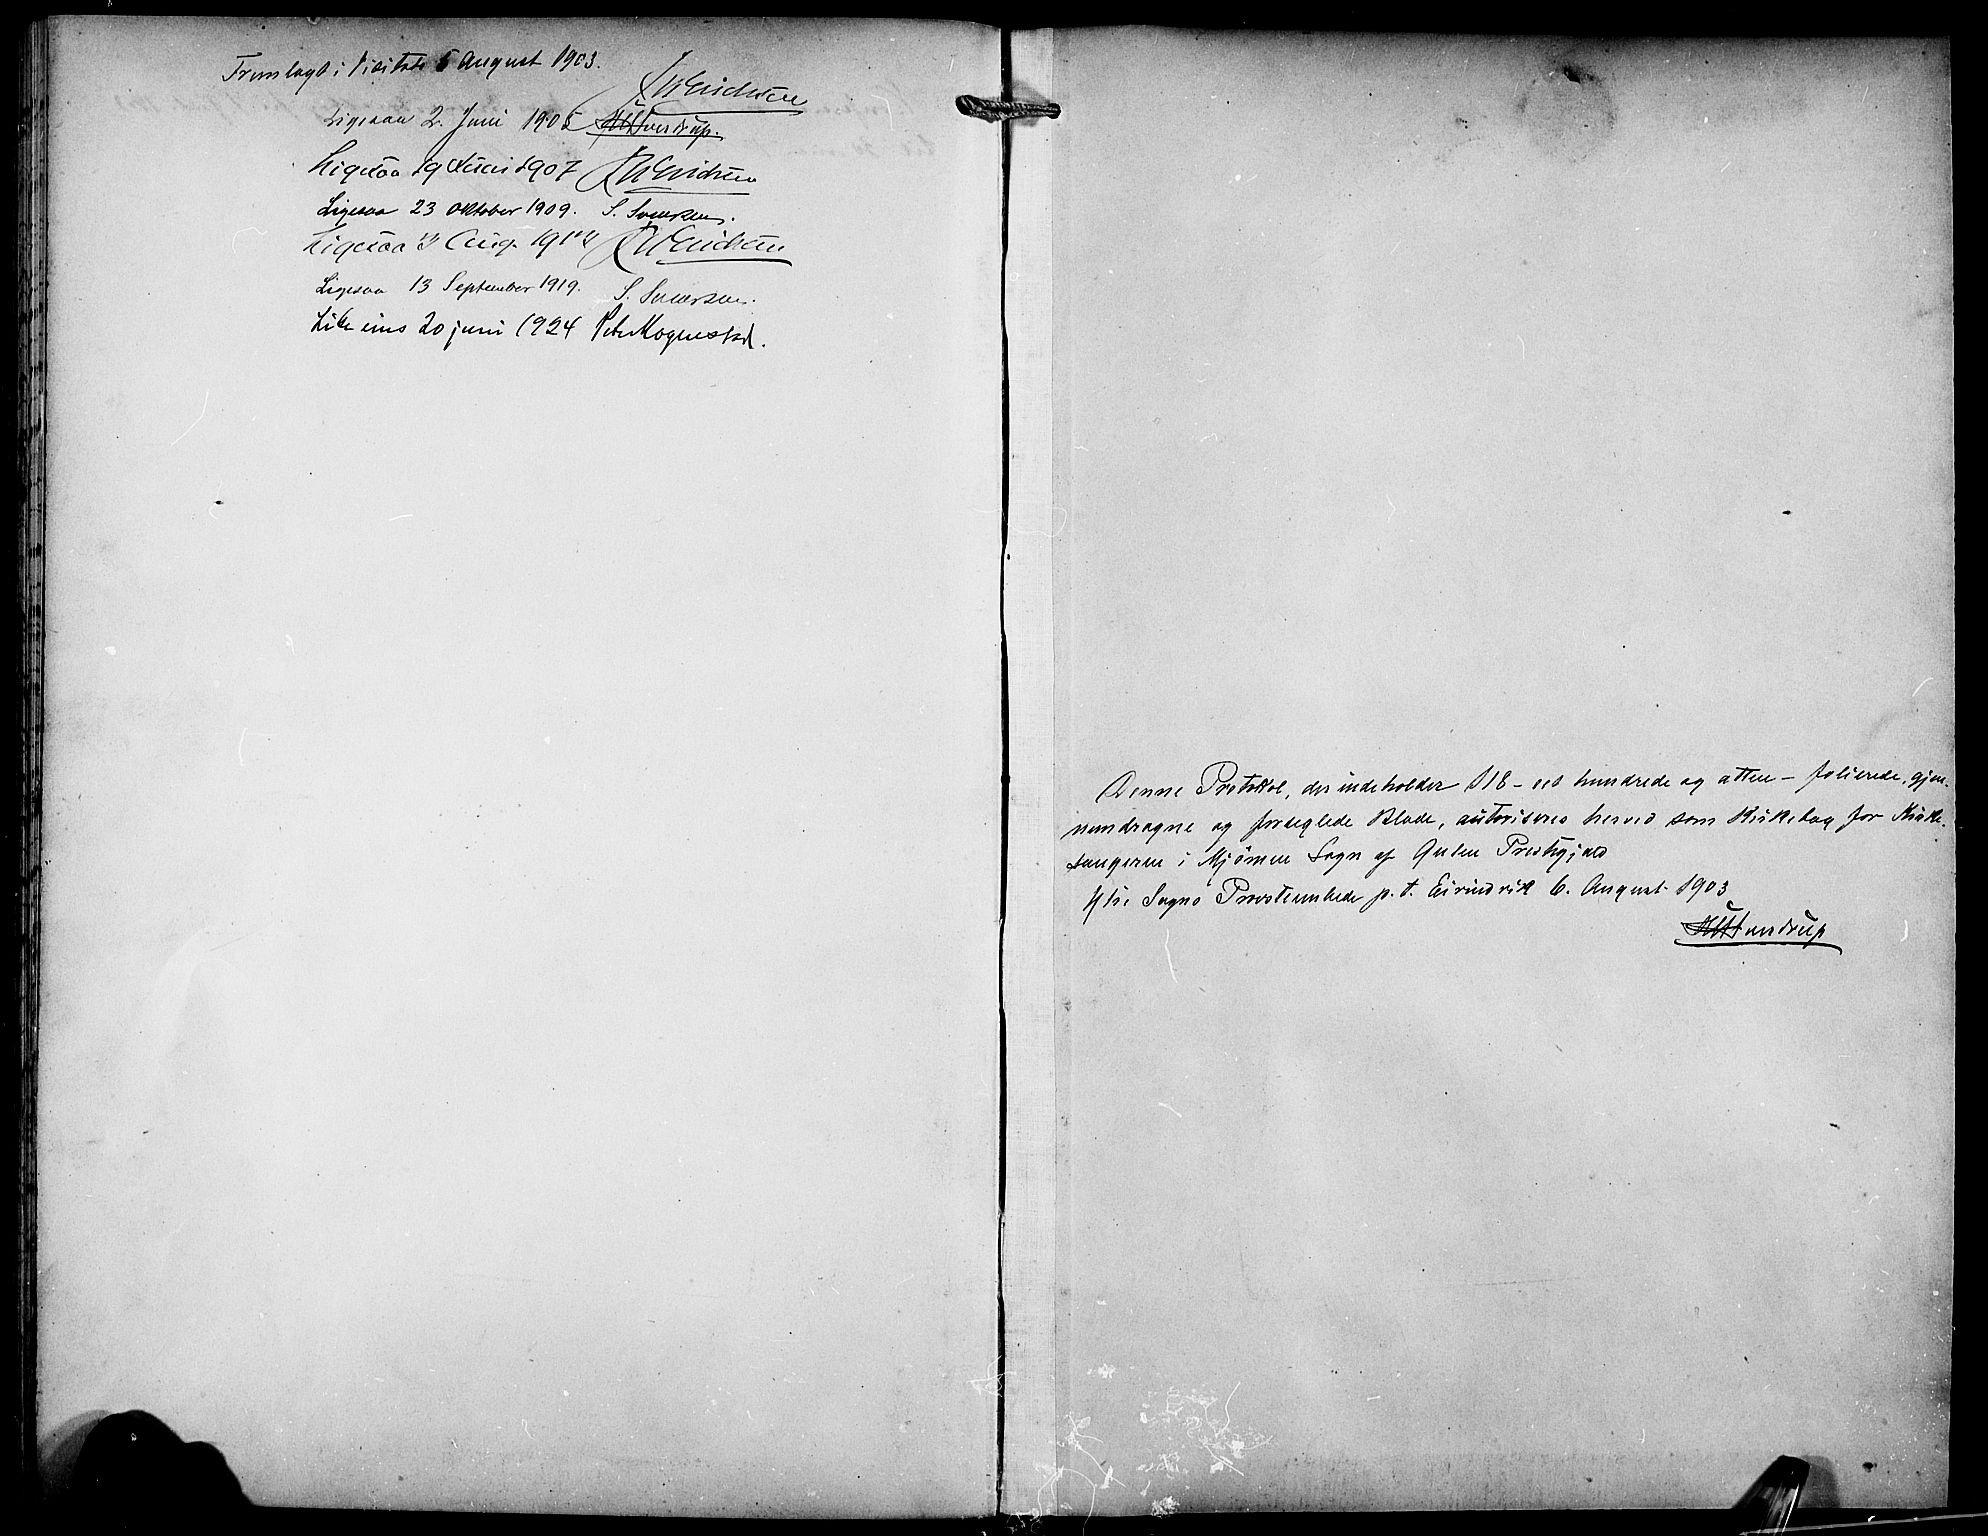 Fremlagt i Visitats 5 August 1903.
JWErichsen
Ligesaa 2. Juni 1905 Sverdrup.
Ligesaa 19 Juni 1907 JWErichsen
Ligesaa 23 Oktober 1909. S. Svensen.
Ligesaa 3 Aug. JWErichsen
Ligesaa 13 September 1919. S. Svensen.
Like eins 20 juni 1924 Peter Hognestad.
Denne Protokol, der indeholder 118 - et hundrede og atten - folierede, gjen-
nemdragne og forseglede Blade, autoriseres herved som Kirkebog for Kirke-
sangeren i Mjømen Sogn af Gulen Prestegjæld
Ytre Sogns Provsteembede p. t. Eivindvik 6. August 1903
Sverdrup